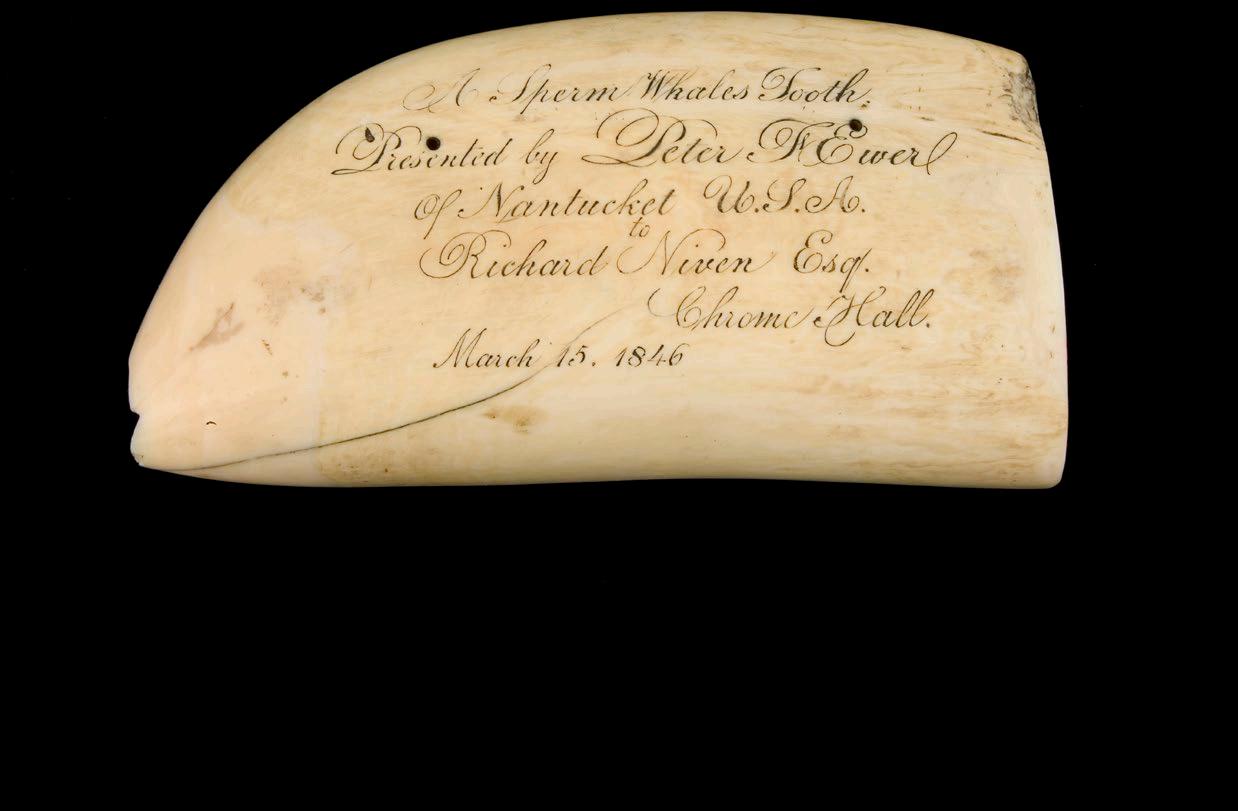 A Sperm Whales Tooth.
Presented by Peter F Ewer
of Nantucket U.S.A.
to
Richard Niven Esq.
Chrome Hall.
March 15. 1846